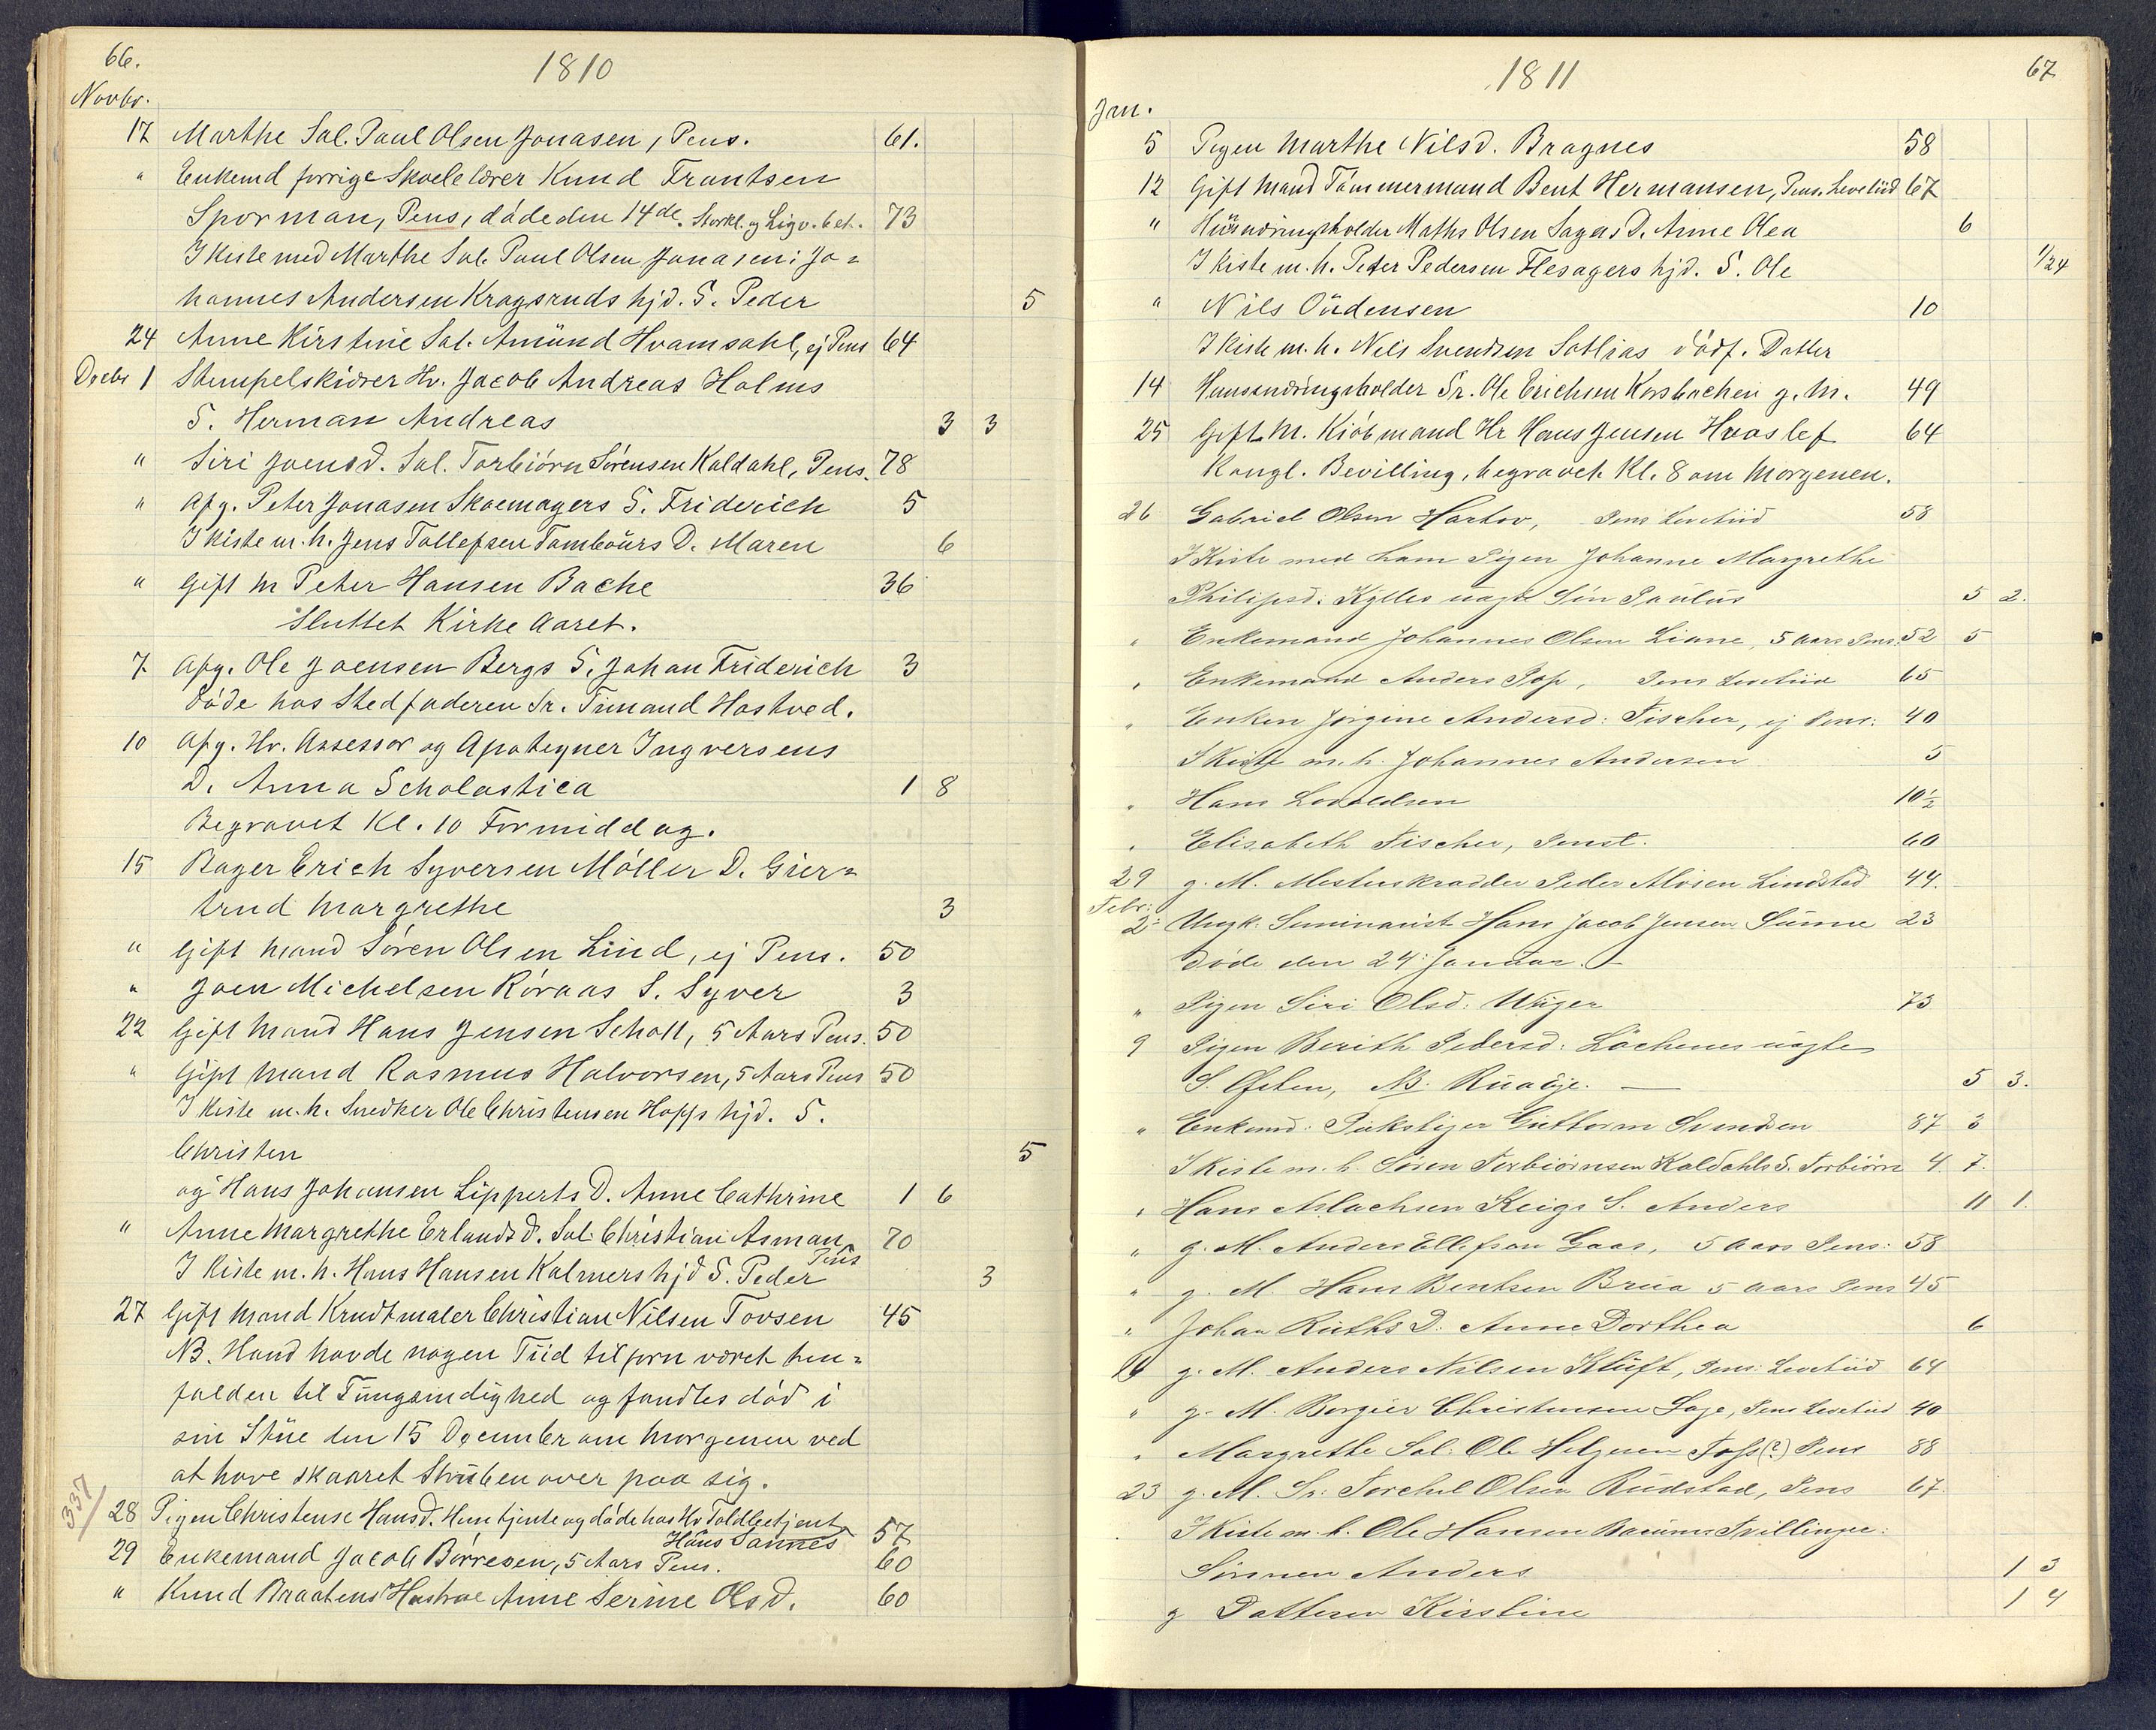 66.
1810
Novbr.
17 Marthe Sal. Paul Olsen Jonasen, Pens. 61.
" Enkemd forrige Skoelelærer Knud Frantsen
Sporman, Pens, døde den 14de. Storkl. og Ligv. bet. 73
I Kiste med Marthe Sal. Paul Olsen Jonasen: Jo=
hannes Andersen Kragsruds hjd. S. Peder 5
24 Anne Kirstine Sal. Amünd Hvamsahl, ej Pens 64
Decbr 1 Stempelskiærer Hr. Jacob Andreas Holms
S. Herman Andreas 3 3
" Siri Joensd. Sal. Torbiørn Sørensen Kaldahl, Pens. 78
" Afg. Peter Jonasen Skoemagers S. Friderich 5
I Kiste m. h. Jens Tollefsen Tamboürs D. Maren 6
" Gift M Peter Hansen Bache 36
Sluttet Kirke Aaret.
7 Afg. Ole Joensen Bergs S. Johan Friderich 3
Døde hos Stedfaderen Sr. Timand Hostved.
10 Afg. Hr. Assessor og Apoteqner Ingversens
D. Anna Scholastica 1 8
Begravet Kl. 10 Formiddag.
15 Bager Erich Syversen Møller D. Gier=
trud Margrethe 3
" Gift Mand Søren Olsen Lind, ej Pens. 50
" Joen Michelsen Røraas S. Syver 3
22 Gift Mand Hans Jensen Schott, 5 Aars Pens. 50
" Gift Mand Rasmus Halvorsen, 5 Aars Pens 50
I Kiste m. h. Snedker Ole Christensen Hopps hjd. S.
Christen 5
og Hans Johansen Lipperts D. Anne Cathrine 1 6
" Anne Margrethe Erlandsd. Sal. Christian Asman, 70
Pens
I Kiste m. h. Hans Hansen Kalmers hjd S. Peder 3
27 Gift Mand Krudtmaler Christian Nilsen Tovsen 45
NB. Hand havde nogen Tiid tilforn været hen=
falden til Tüngsindighed og fandtes død i
sin Stüe den 15 December om Morgenen ved
at have skaaret Strüben over paa sig.
337/
28 Pigen Christense Hansd. Hun tjente og døde hos Hr Toldbetjent
Hans Sannes 57
29 Enkemand Jacob Børresen, 5 Aars Pens. 60
" Knud Braatens Hustroe Anne Serine Olsd. 60
67
1811
Jan.
5 Pigen Marthe Nilsd. Bragnes 58
12 Gift Mand Tømmermand Bent Hermansen, Pens. Levetiid 67
" Hüüsnæringsholder Maths Olsen Sagas D. Anne Olea 6
I Kiste m. h. Peder Pedersen Flesagers hjd. S. Ole 1/24
" Nils Oüdensen 10
I Kiste m. h. Nels Svendsen Satlias dødf. Datter
14 Huusnæringsholder Sr. Ole Erichsen Korsbachen g. M. 49
25 Gift M. Kiøbmand Hr Hans Jensen Hvoslef 64
Kongl. Bevilling, begravet Kl. 8 om Morgenen.
26 Gabriel Olsen Harkov, Pens Levetiid 58
I Kiste med ham Pigen Johanne Margrethe
Philipsd. Kylles uægte Søn Paulüs 5 2.
" Enkemand Johannes Olsen Liane, 5 Aars Pens. 52 5
" Enkemand Anders Pop, Pens Levetiid 65
" Enken Jørgine Andersd: Fischer, ej Pens: 40
I Kiste m. h. Johannes Andersen 5
" Hans Lovaldsen 10 1/2
" Elisabeth Fischer, Penst. 60
29 g. M. Mesterskrædder Peder Alvsen Lindstad 44.
Febr:
2: Ungk: Seminarist Hans Jacob Jensen Sünne 23
Døde den 24: Januar.
" Pigen Siri Olsd: Wüger 73
9 Pigen Berith Pedersd: Løchenes uægte
S. Østen, NB. Rüabye. 5 3.
" Enkemd: Pükstiger Güttorm Svendsen 87 3
I Kiste m. h. Søren Torbiørnsen Kaldahls S. Torbiørn 4 7.
" Hans Aslachsen Kleigs S. Anders 11 1.
" g. M. Anders Ellefsen Gaas, 5 Aars Pens: 58
" g. M. Hans Bentsen Brüa 5 Aars Pens 45
" Johan Rüths D. Anne Dorthea 6
16 g. M. Anders Nilsen Klüft, Pens: Levetiid 64
" g. M. Borgier Christensen Sage, Pens Levetiid 40
" Margrethe Sal: Ole Helgesen Foss(?) Pens 88
23 g. M. Sr: Torchel Olsen Rüdstad, Pens 67.
I Kiste m. h. Ole Hansen Bærums Tvillinger:
Sønnen Anders 1 3
g Datteren Kirstine 1 4